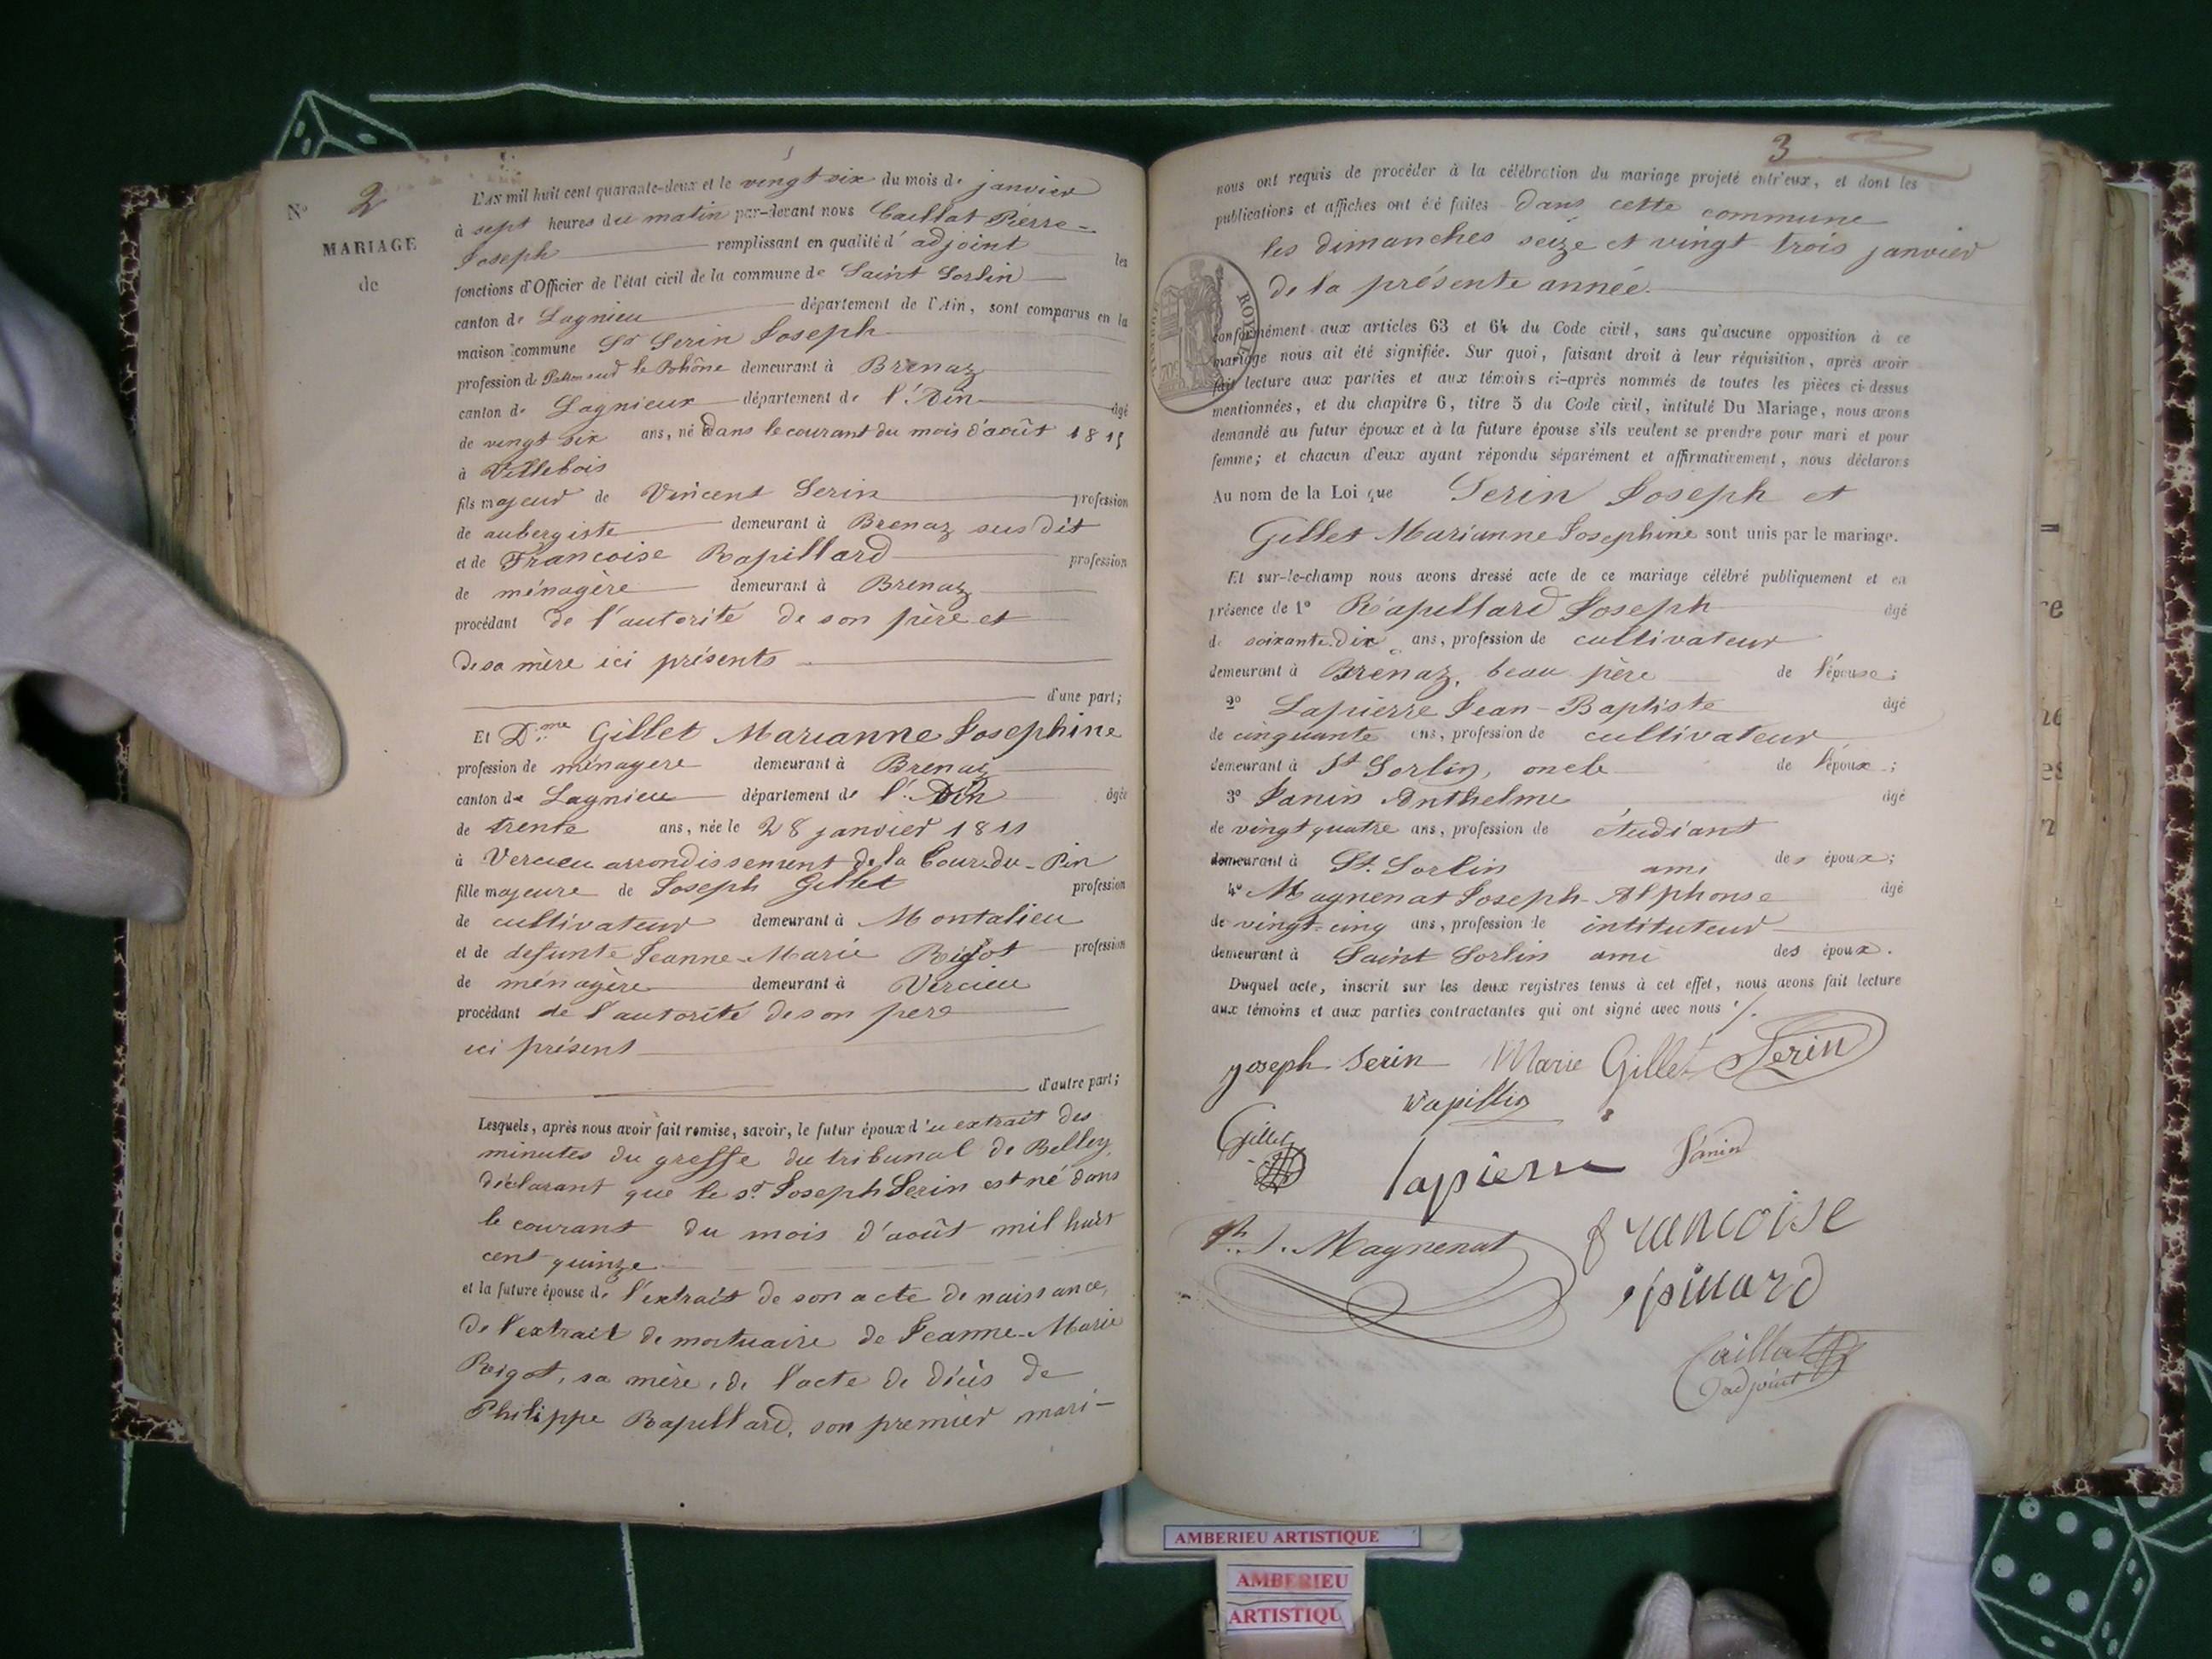 N° 2
MARIAGE
de
L'AN mil huit cent quarante-deux et le vingt six du mois de janvier
à sept heures du matin par-devant nous Caillat Pierre-
Joseph remplissant en qualité d'adjoint les
fonctions d'Officier de l'état civil de la commune de Saint Sorlin
canton de Lagnieu département de l'Ain, sont comparus en la
maison commune Sr Serin Joseph
profession de Patron sur le Rhône demeurant à Brenaz
canton de Lagnieux département de l'Ain âgé
de vingt six ans, né dans le courant du mois d'août 1815
à Villebois
fils majeur de Vincent Serin profession
de aubergiste demeurant à Brenaz sus dit
et de Francoise Rapillard profession
de ménagère demeurant à Brenaz
procédant de l'autorité de son père et
de sa mère ici présents
d'une part;
Et Dme Gillet Marianne Josephine
profession de ménagere demeurant à Brenaz
canton de Lagnieu département de l'Ain âgée
de trente ans, née le 28 janvier 1811
à Vercieu arrondissement de la Tour-du-Pin
fille majeure de Joseph Gillet profession
de cultivateur demeurant à Montalieu
et de defunte Jeanne-Marie Rigot profession
de ménagère demeurant à Vercieu
procédant de l'autorité de son pere
ici présent
d'autre part;
Lesquels, après nous avoir fait remise, savoir, le futur époux d'u extrait des
minutes du greffe du tribunal de Belley,
déclarant que le sr Joseph Serin est né dans
le courant du mois d'août mil huit
cent quinze
et la future épouse de l'extrait de son acte de naissance,
de l'extrait de mortuaire de Jeanne-Marie
Rigot, sa mère, de l'acte de décès de
Philippe Rapillard, son premier mari-
3
nous ont requis de procéder à la célébration du mariage projeté entr'eux, et dont les
publications et affiches ont été faites dans cette commune
les dimanches seize et vingt-trois janvier
de la présente année.
TIMBRE ROYAL
conformément aux articles 63 et 64 du Code civil, sans qu'aucune opposition à ce
mariage nous ait été signifiée. Sur quoi, faisant droit à leur réquisition, après avoir
fait lecture aux parties et aux témoins ci-après nommés de toutes les pièces ci-dessus
mentionnées, et du chapitre 6, titre 5 du Code civil, intitulé Du Mariage, nous avons
demandé au futur époux et à la future épouse s'ils veulent se prendre pour mari et pour
femme; et chacun d'eux ayant répondu séparément et affirmativement, nous déclarons
Au nom de la Loi que Serin Joseph et
Gillet Marianne Josephine sont unis par le mariage.
Et sur-le-champ nous avons dressé acte de ce mariage célébré publiquement et en
présence de 1° Rapillard Joseph âgé
de soixante-dix ans, profession de cultivateur
demeurant à Brenaz, beau père de l'épouse;
2° Lapierre Jean-Baptiste âgé
de cinquante ans, profession de cultivateur
demeurant à St Sorlin, oncle de l'époux;
3° Janin Anthelme âgé
de vingt quatre ans, profession de étudiant
demeurant à St. Sorlin ami des époux;
4° Magnenat Joseph-Alphonse âgé
de vingt-cinq ans, profession de intituteur
demeurant à Saint Sorlin ami des époux.
Duquel acte, inscrit sur les deux registres tenus à cet effet, nous avons fait lecture
aux témoins et aux parties contractantes qui ont signé avec nous ./.
joseph Serin Marie Gillet Serin
Gillet
lapierre Janin
J. Magnenat francoise
Caillat
adjoint
AMBERIEU ARTISTIQUE
AMBERIEU
ARTISTIQU